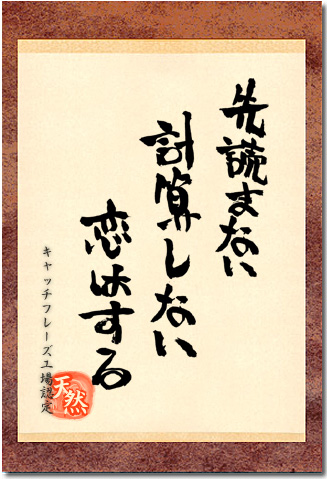 先読まない
計算しない
恋はする
キャッチフレーズ工場認定
天然